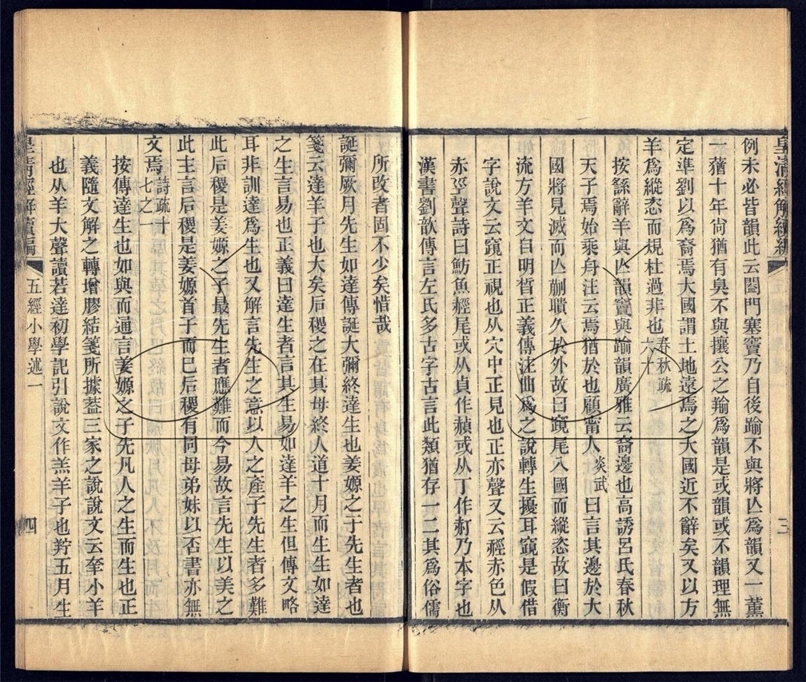 皇清經解續編
例未必皆韻此云閨門塞竇乃自後踰不與將亾爲韻又一薰
一蕕十年尙猶有臭不與攘公之羭爲韻是或韻或不韻理無
定準劉以爲裔焉大國謂土地遠焉之大國近不辭矣又以方
羊爲縱恣而規杜過非也春秋疏六十
按繇辭羊與亾韻竇與踰韻廣雅云裔邊也高誘呂氏春秋
天子焉始乘舟注云焉猶於也顧甯人炎武曰言其邊於大
國將見滅而亾蒯聵久於外故曰竀尾入國而縱恣故曰衡
流方羊文自明晳正義傳注曲爲之說轉生擾耳竀是假借
字說文云竀正視也从穴中正見也正亦聲又云䞓赤色从
赤巠聲詩曰魴魚䞓尾或从貞作䞓或从丁作䞓乃本字也
漢書劉歆傳言左氏多古字古言此類猶存一二其爲俗儒
三
所改者固不少矣惜哉
誕彌厥月先生如達傳誕大彌終達生也姜嫄之子先生者也
箋云達羊子也大矣后稷之在其母終人道十月而生生如達
之生言易也正義曰達生者言其生易如達羊之生但傳文略
耳非訓達爲生也又解言先生之意以人之產子先生者多難
此后稷是姜嫄之子最先生者應難而今易故言先生以美之
此主言后稷是姜嫄首子而已后稷有同母弟妹以否書亦無
文焉詩疏十七之一
按傳達生也如與而通言姜嫄之子先凡人之生而生也正
義隨文解之轉增膠結箋所據葢三家之說說文云羍小羊
也从羊大聲讀若達初學記引說文作羔羊子也羜五月生
皇清經解續編
五經小學述一
四